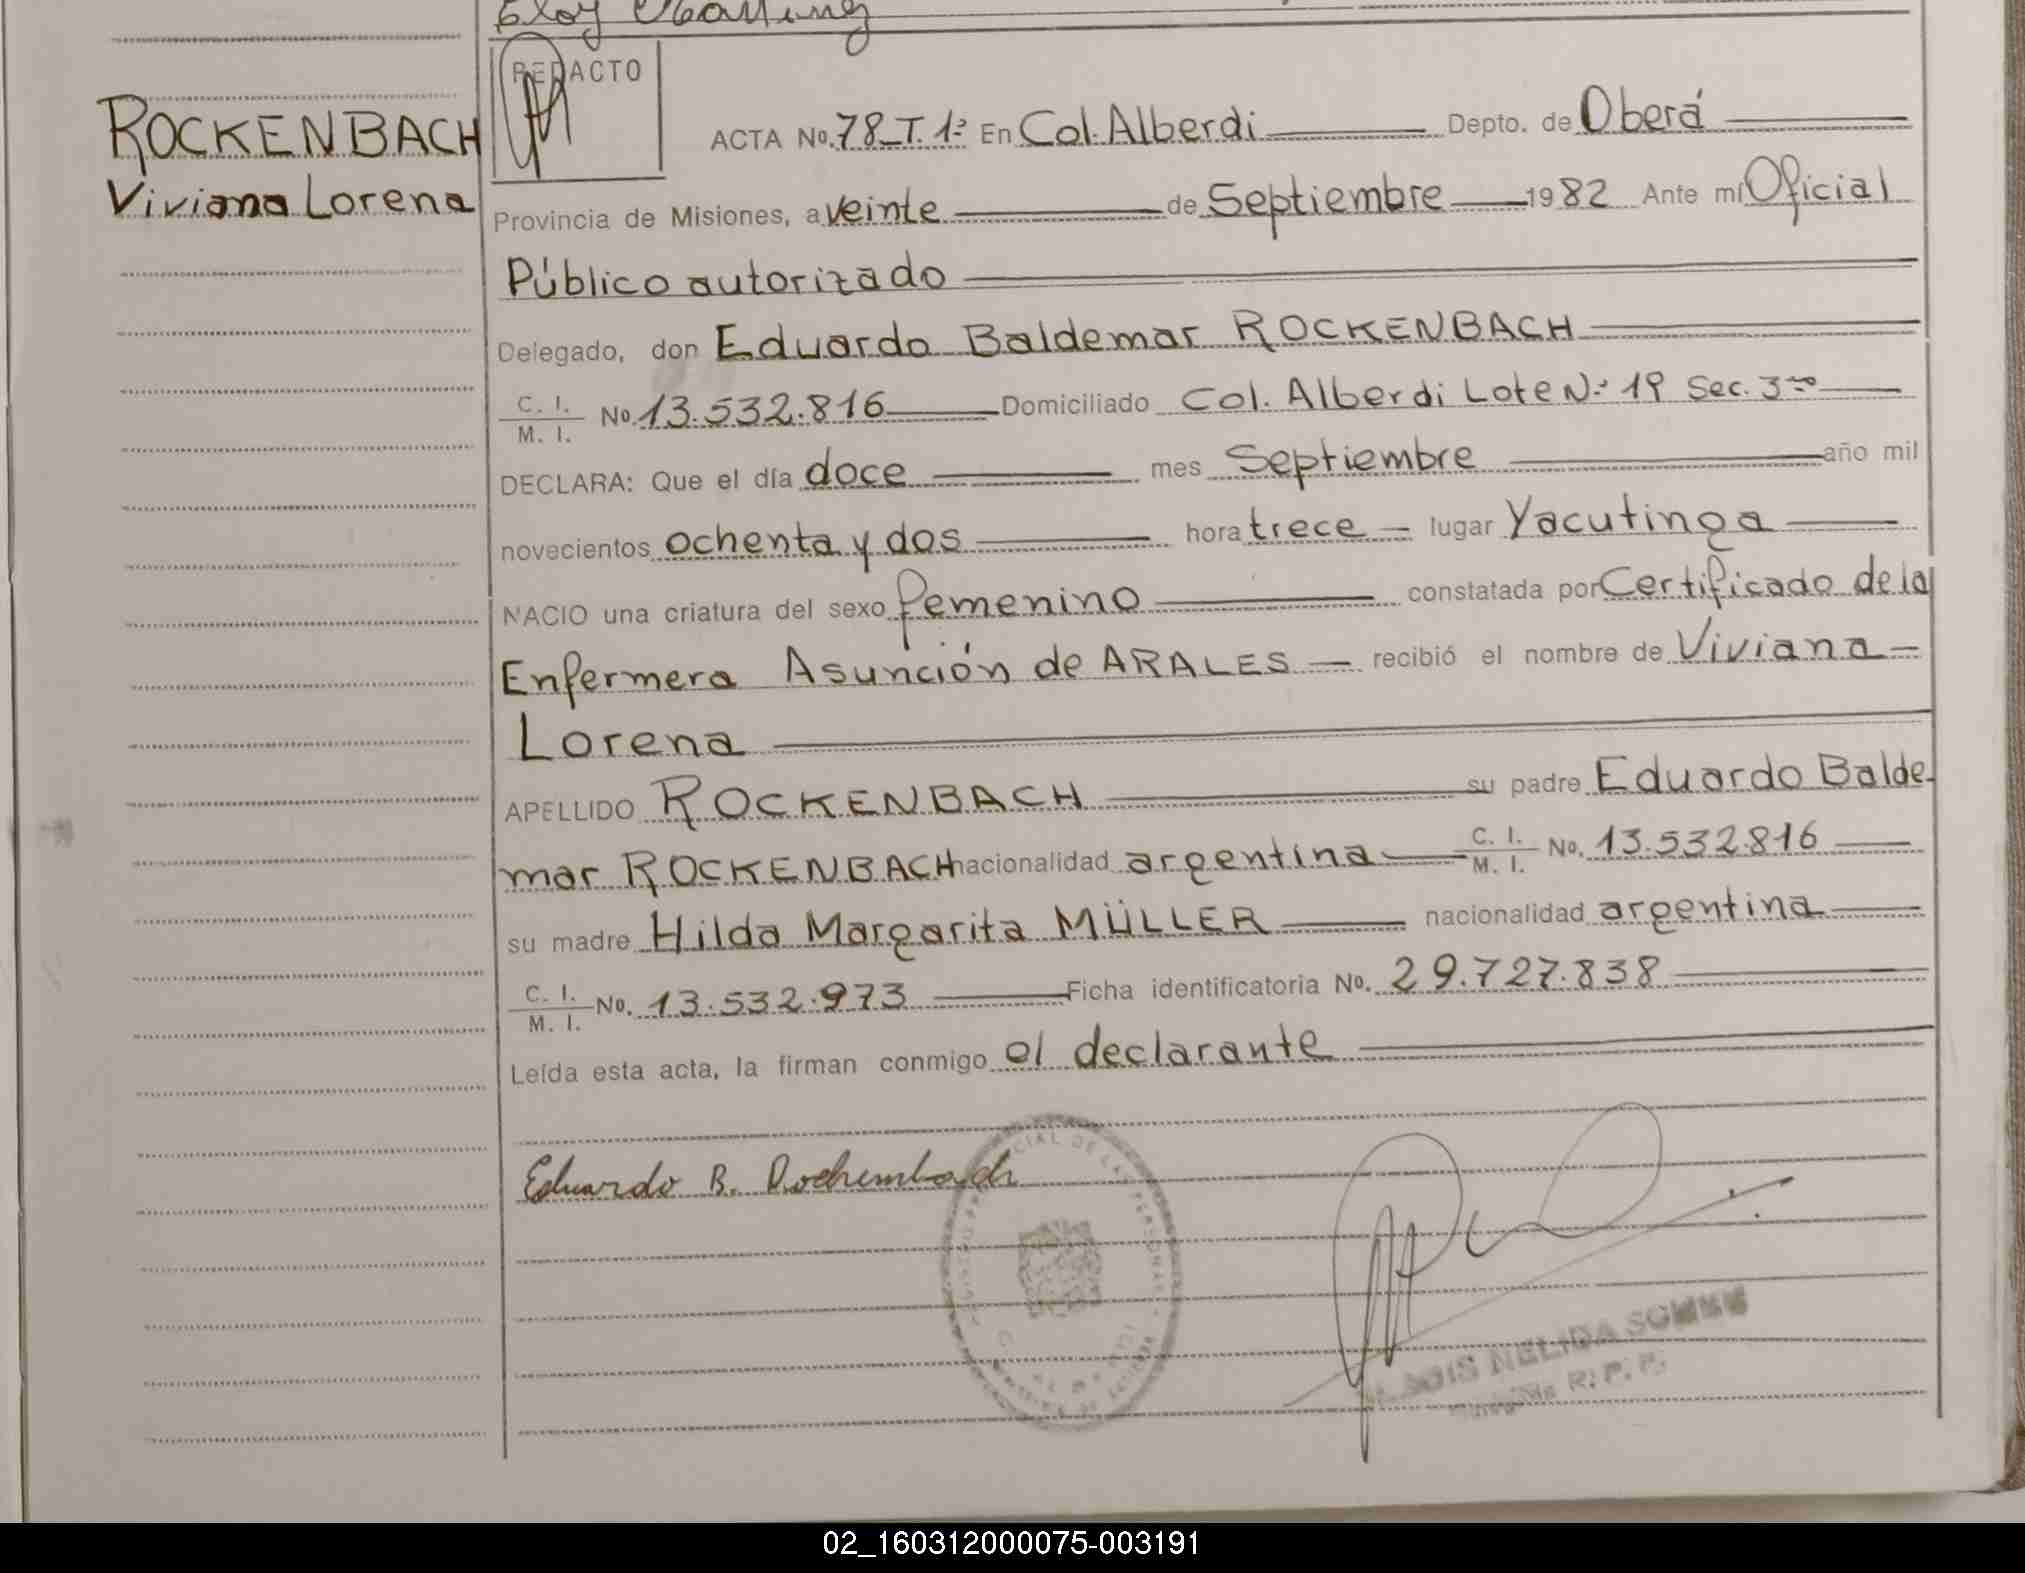 Eloy
REDACTO
ROCKENBACH
Viviana Lorena
ACTA No. 78_T. 1º En Col. Alberdi Depto. de Oberá
Provincia de Misiones, a veinte de Septiembre 1982 Ante mí Oficial
Público autorizado
Delegado, don Eduardo Baldemar ROCKENBACH
C. I.
M. I. No. 13.532.816 Domiciliado Col. Alberdi Lote Nº 19 Sec. 3ra
DECLARA: Que el día doce mes Septiembre año mil
novecientos ochenta y dos hora trece lugar Yacutinga
NACIO una criatura del sexo femenino constatada por Certificado de la
Enfermera Asunción de ARALES recibió el nombre de Viviana
Lorena
APELLIDO ROCKENBACH su padre Eduardo Balde-
mar ROCKENBACH nacionalidad argentina C. I. M. I. No. 13.532.816
su madre Hilda Margarita MÜLLER nacionalidad argentina
C. I.
M. I. No. 13.532.973 Ficha identificatoria No. 29.727.838
Leída esta acta, la firman conmigo el declarante
Eduardo B. Rockembach
NELIDA
R. P. P.
02_160312000075-003191